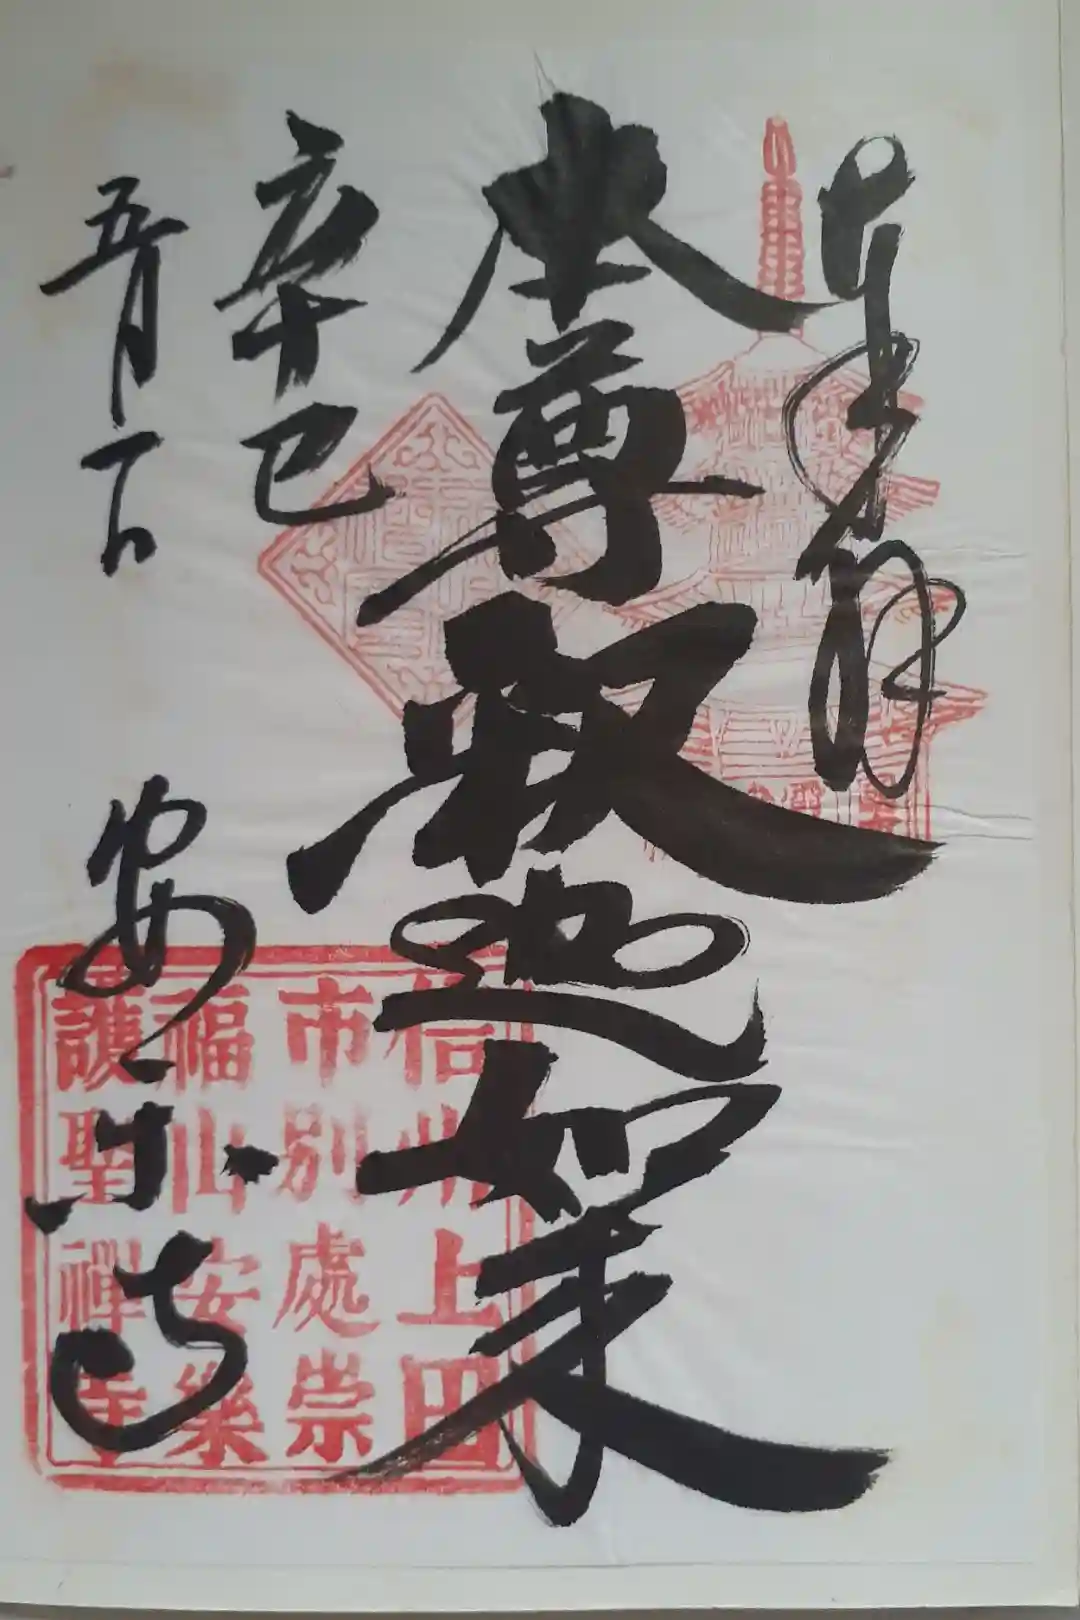 奉拝
本尊釈迦如来
辛巳
五月
安楽寺
信州上田
市別處崇
福山安樂
護聖禪寺